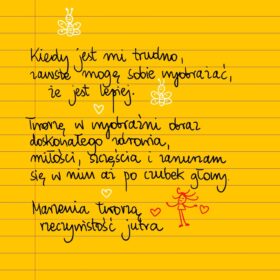 Kiedy jest mi trudno,
zawsze mogę sobie wyobrażać,
że jest lepiej.
Tworzę w wyobraźni obraz
doskonałego zdrowia,
miłości, szczęścia i zanurzam
się w nim aż po czubek głowy.
Marzenia tworzą
rzeczywistość jutra